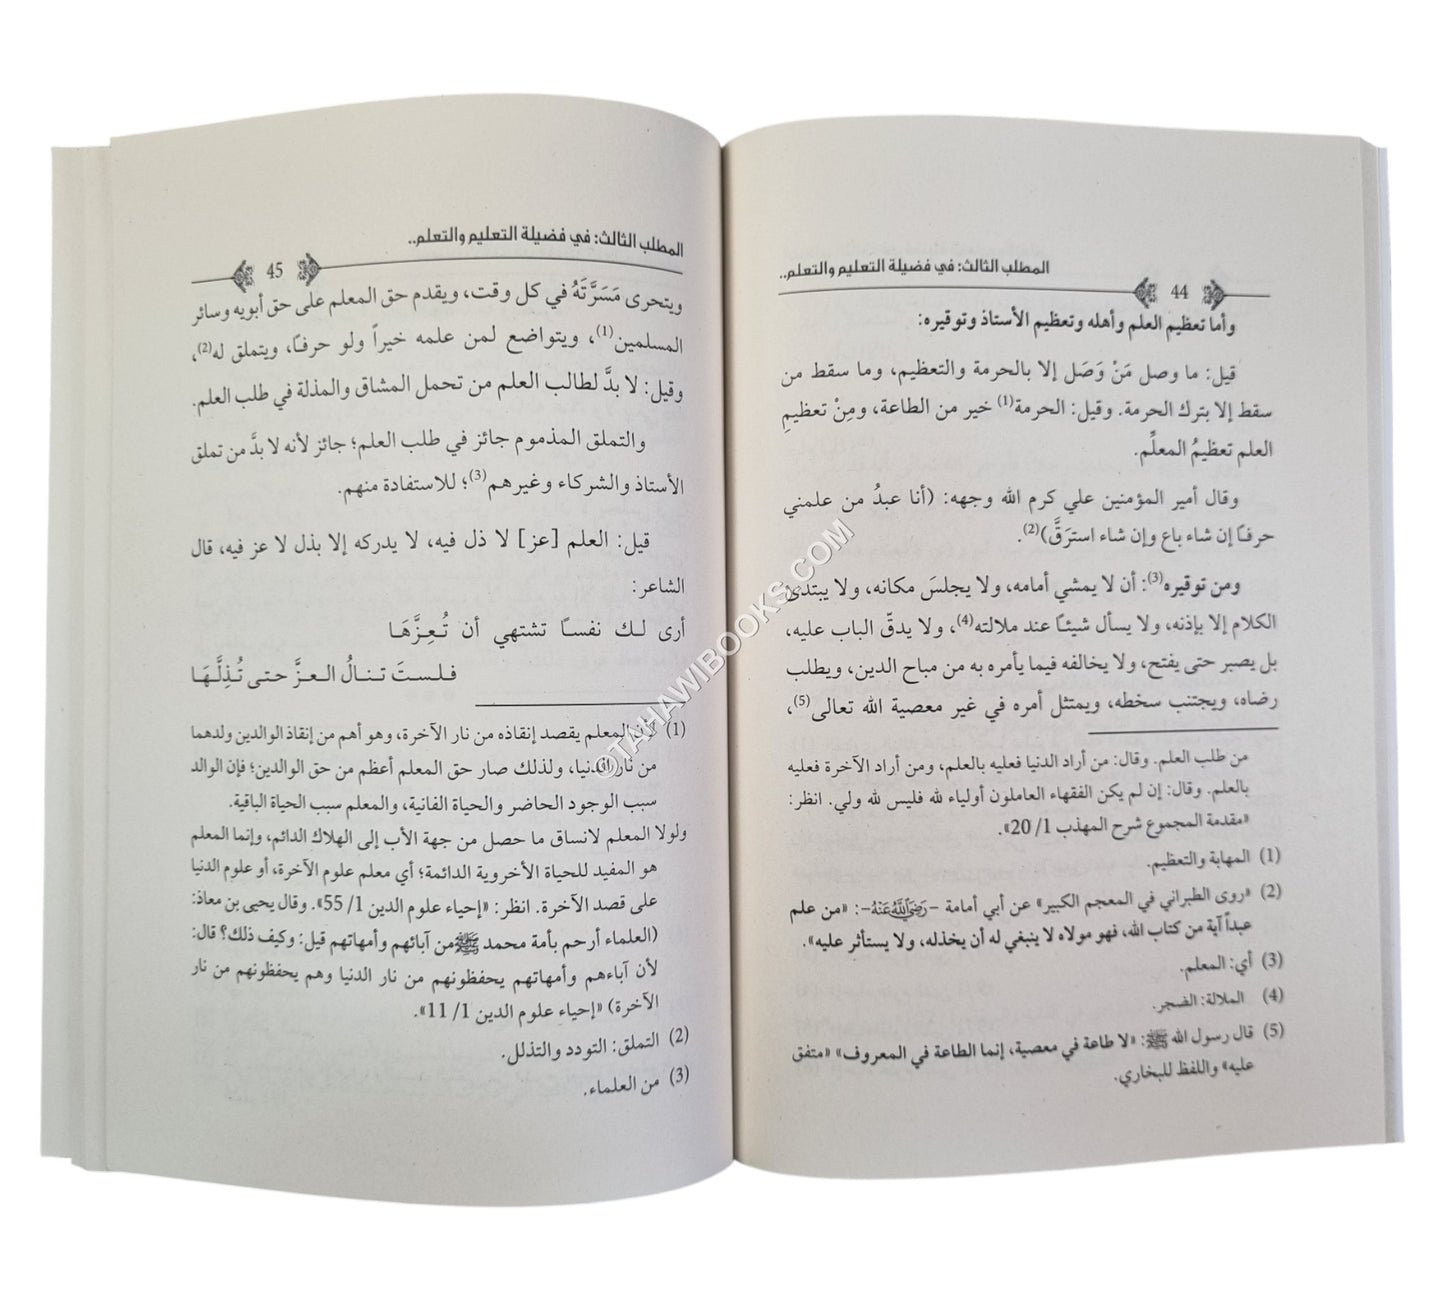 المطلب الثالث: في فضيلة التعليم والتعلم..
44
وأما تعظيم العلم وأهله وتعظيم الأستاذ وتوقيره:
قيل: ما وصل مَنْ وَصَل إلا بالحرمة والتعظيم، وما سقط من
سقط إلا بترك الحرمة. وقيل: الحرمة(1) خير من الطاعة، ومِنْ تعظيمِ
العلم تعظيمُ المعلِّم.
وقال أمير المؤمنين علي كرم الله وجهه: (أنا عبدُ من علمني
حرفاً إن شاء باع وإن شاء استرَقَّ)(2).
ومن توقيره(3): أن لا يمشي أمامه، ولا يجلسَ مكانه، ولا يبتدئ
الكلام إلا بإذنه، ولا يسأل شيئاً عند ملالته(4)، ولا يدقّ الباب عليه،
بل يصبر حتى يفتح، ولا يخالفه فيما يأمره به من مباح الدين، ويطلب
رضاه، ويجتنب سخطه، ويمتثل أمره في غير معصية الله تعالى(5)،
من طلب العلم. وقال: من أراد الدنيا فعليه بالعلم، ومن أراد الآخرة فعليه
بالعلم. وقال: إن لم يكن الفقهاء العاملون أولياء لله فليس لله ولي. انظر:
«مقدمة المجموع شرح المهذب 1/ 20».
(1) المهابة والتعظيم.
(2) «روى الطبراني في المعجم الكبير» عن أبي أمامة -رَضِيَ اللَّهُ عَنْهُ-: «من علم
عبداً آية من كتاب الله، فهو مولاه لا ينبغي له أن يخذله، ولا يستأثر عليه».
(3) أي: المعلم.
(4) الملالة: الضجر.
(5) قال رسول الله ﷺ: «لا طاعة في معصية، إنما الطاعة في المعروف» «متفق
عليه» واللفظ للبخاري.
المطلب الثالث: في فضيلة التعليم والتعلم..
45
ويتحرى مَسَرَّتَهُ في كل وقت، ويقدم حق المعلم على حق أبويه وسائر
المسلمين(1)، ويتواضع لمن علمه خيراً ولو حرفاً، ويتملق له(2)،
وقيل: لا بدَّ لطالب العلم من تحمل المشاق والمذلة في طلب العلم.
والتملق المذموم جائز في طلب العلم؛ جائز لأنه لا بدَّ من تملق
الأستاذ والشركاء وغيرهم(3)؛ للاستفادة منهم.
قيل: العلم [عز] لا ذل فيه، لا يدركه إلا بذل لا عز فيه، قال
الشاعر:
أرى لك نفساً تشتهي أن تُعِزَّهَا
فلستَ تنالُ العزَّ حتى تُذِلَّهَا
(1) لأن المعلم يقصد إنقاذه من نار الآخرة، وهو أهم من إنقاذ الوالدين ولدهما
من نار الدنيا، ولذلك صار حق المعلم أعظم من حق الوالدين؛ فإن الوالد
سبب الوجود الحاضر والحياة الفانية، والمعلم سبب الحياة الباقية.
ولولا المعلم لانساق ما حصل من جهة الأب إلى الهلاك الدائم، وإنما المعلم
هو المفيد للحياة الأخروية الدائمة؛ أي معلم علوم الآخرة، أو علوم الدنيا
على قصد الآخرة. انظر: «إحياء علوم الدين 1/ 55». وقال يحيى بن معاذ:
(العلماء أرحم بأمة محمد ﷺ من آبائهم وأمهاتهم قيل: وكيف ذلك؟ قال:
لأن آباءهم وأمهاتهم يحفظونهم من نار الدنيا وهم يحفظونهم من نار
الآخرة) «إحياء علوم الدين 1/ 11».
(2) التملق: التودد والتذلل.
(3) من العلماء.
©TAHAWIBOOKS.COM